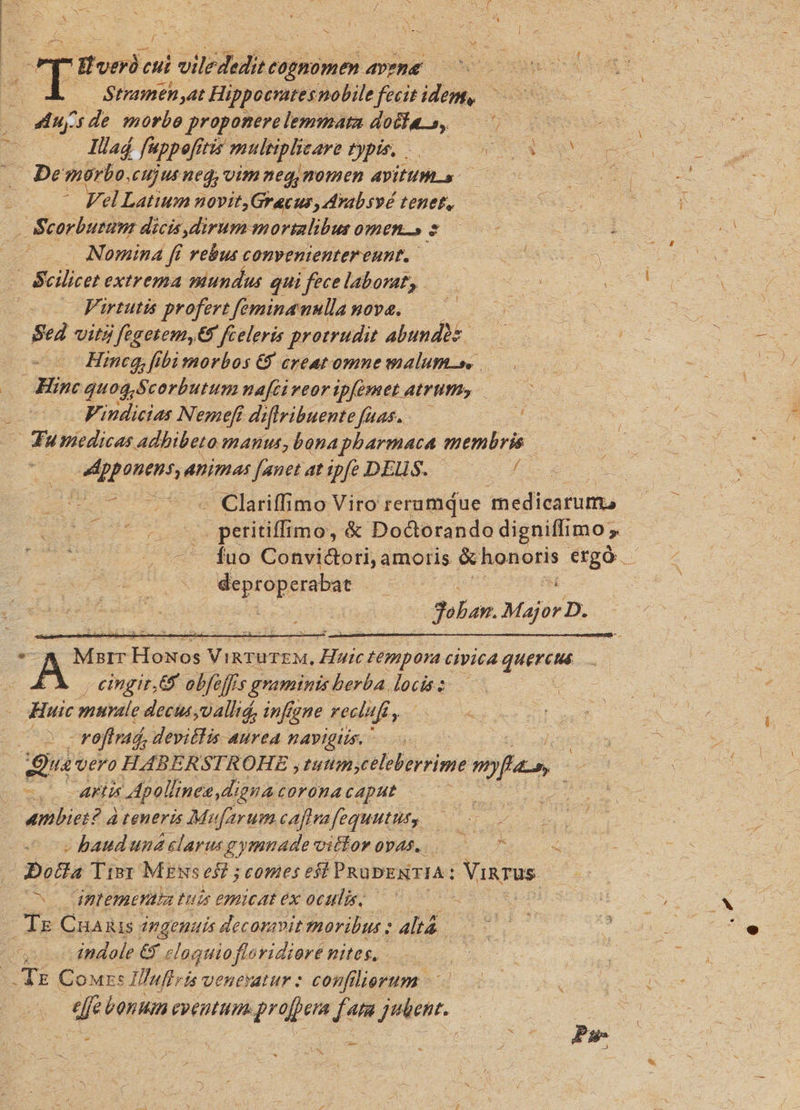 TUverò cui vile dedit cognomen avenæ
Stramen, at Hippocrates nobile fecit idem,
Aujs de morbo proponere lemmata docta,
Illaq; suppositis multiplicare typis,
De morbo, cujus neq; vim neq; nomen avitum
Vel Latium novit, Græcus, Arabsvé tenet,
Scorbutum dicis, dirum mortalibus omen:
Nomina si rebus convenienter eunt.
Scilicet extrema mundus qui fece laborat,
Virtutis profert semina nulla novæ.
Sed vitij segetem, & sceleris protrudit abundè:
Hincq; sibi morbos & creat omne malum.
Hinc quoq; Scorbutum nasci reor ipsemet atrum,
Vindicias Nemesi distribuente suas.
Tu medicas adhibeto manus, bona pharmaca membris
Apponens, animas sanet at ipse DEUS.
Clarissimo Viro rerumque medicarum
peritissimo, & Doctorando dignissimo,
suo Convictori, amoris & honoris ergò
deproperabat
Johan. Major D.
AMBIT HONOS VIRTUTEM, Huic tempora civica quercus
cingit, & obsessis graminis herba locis:
Huic murale decus, valliq; insigne reclusi,
rostraq; devictis aurea navigiis.
Quâ vero HABERSTROHE, tuum, celeberrime mysta,
artis Apollineæ, digna corona caput
ambiet? à teneris Musarum castra sequutus,
haud unâ clarus gymnade victor ovas.
Docta TIBI MENS est; comes est PRUDENTIA: VIRTUS
intemerata tuis emicat ex oculis.
TE CHARIS ingenuis decoravit moribus: altâ
indole & eloquio floridiore nites.
TE COMES Illustris veneratur: consiliorum
esse bonum eventum prospera fata jubent.
Pu-